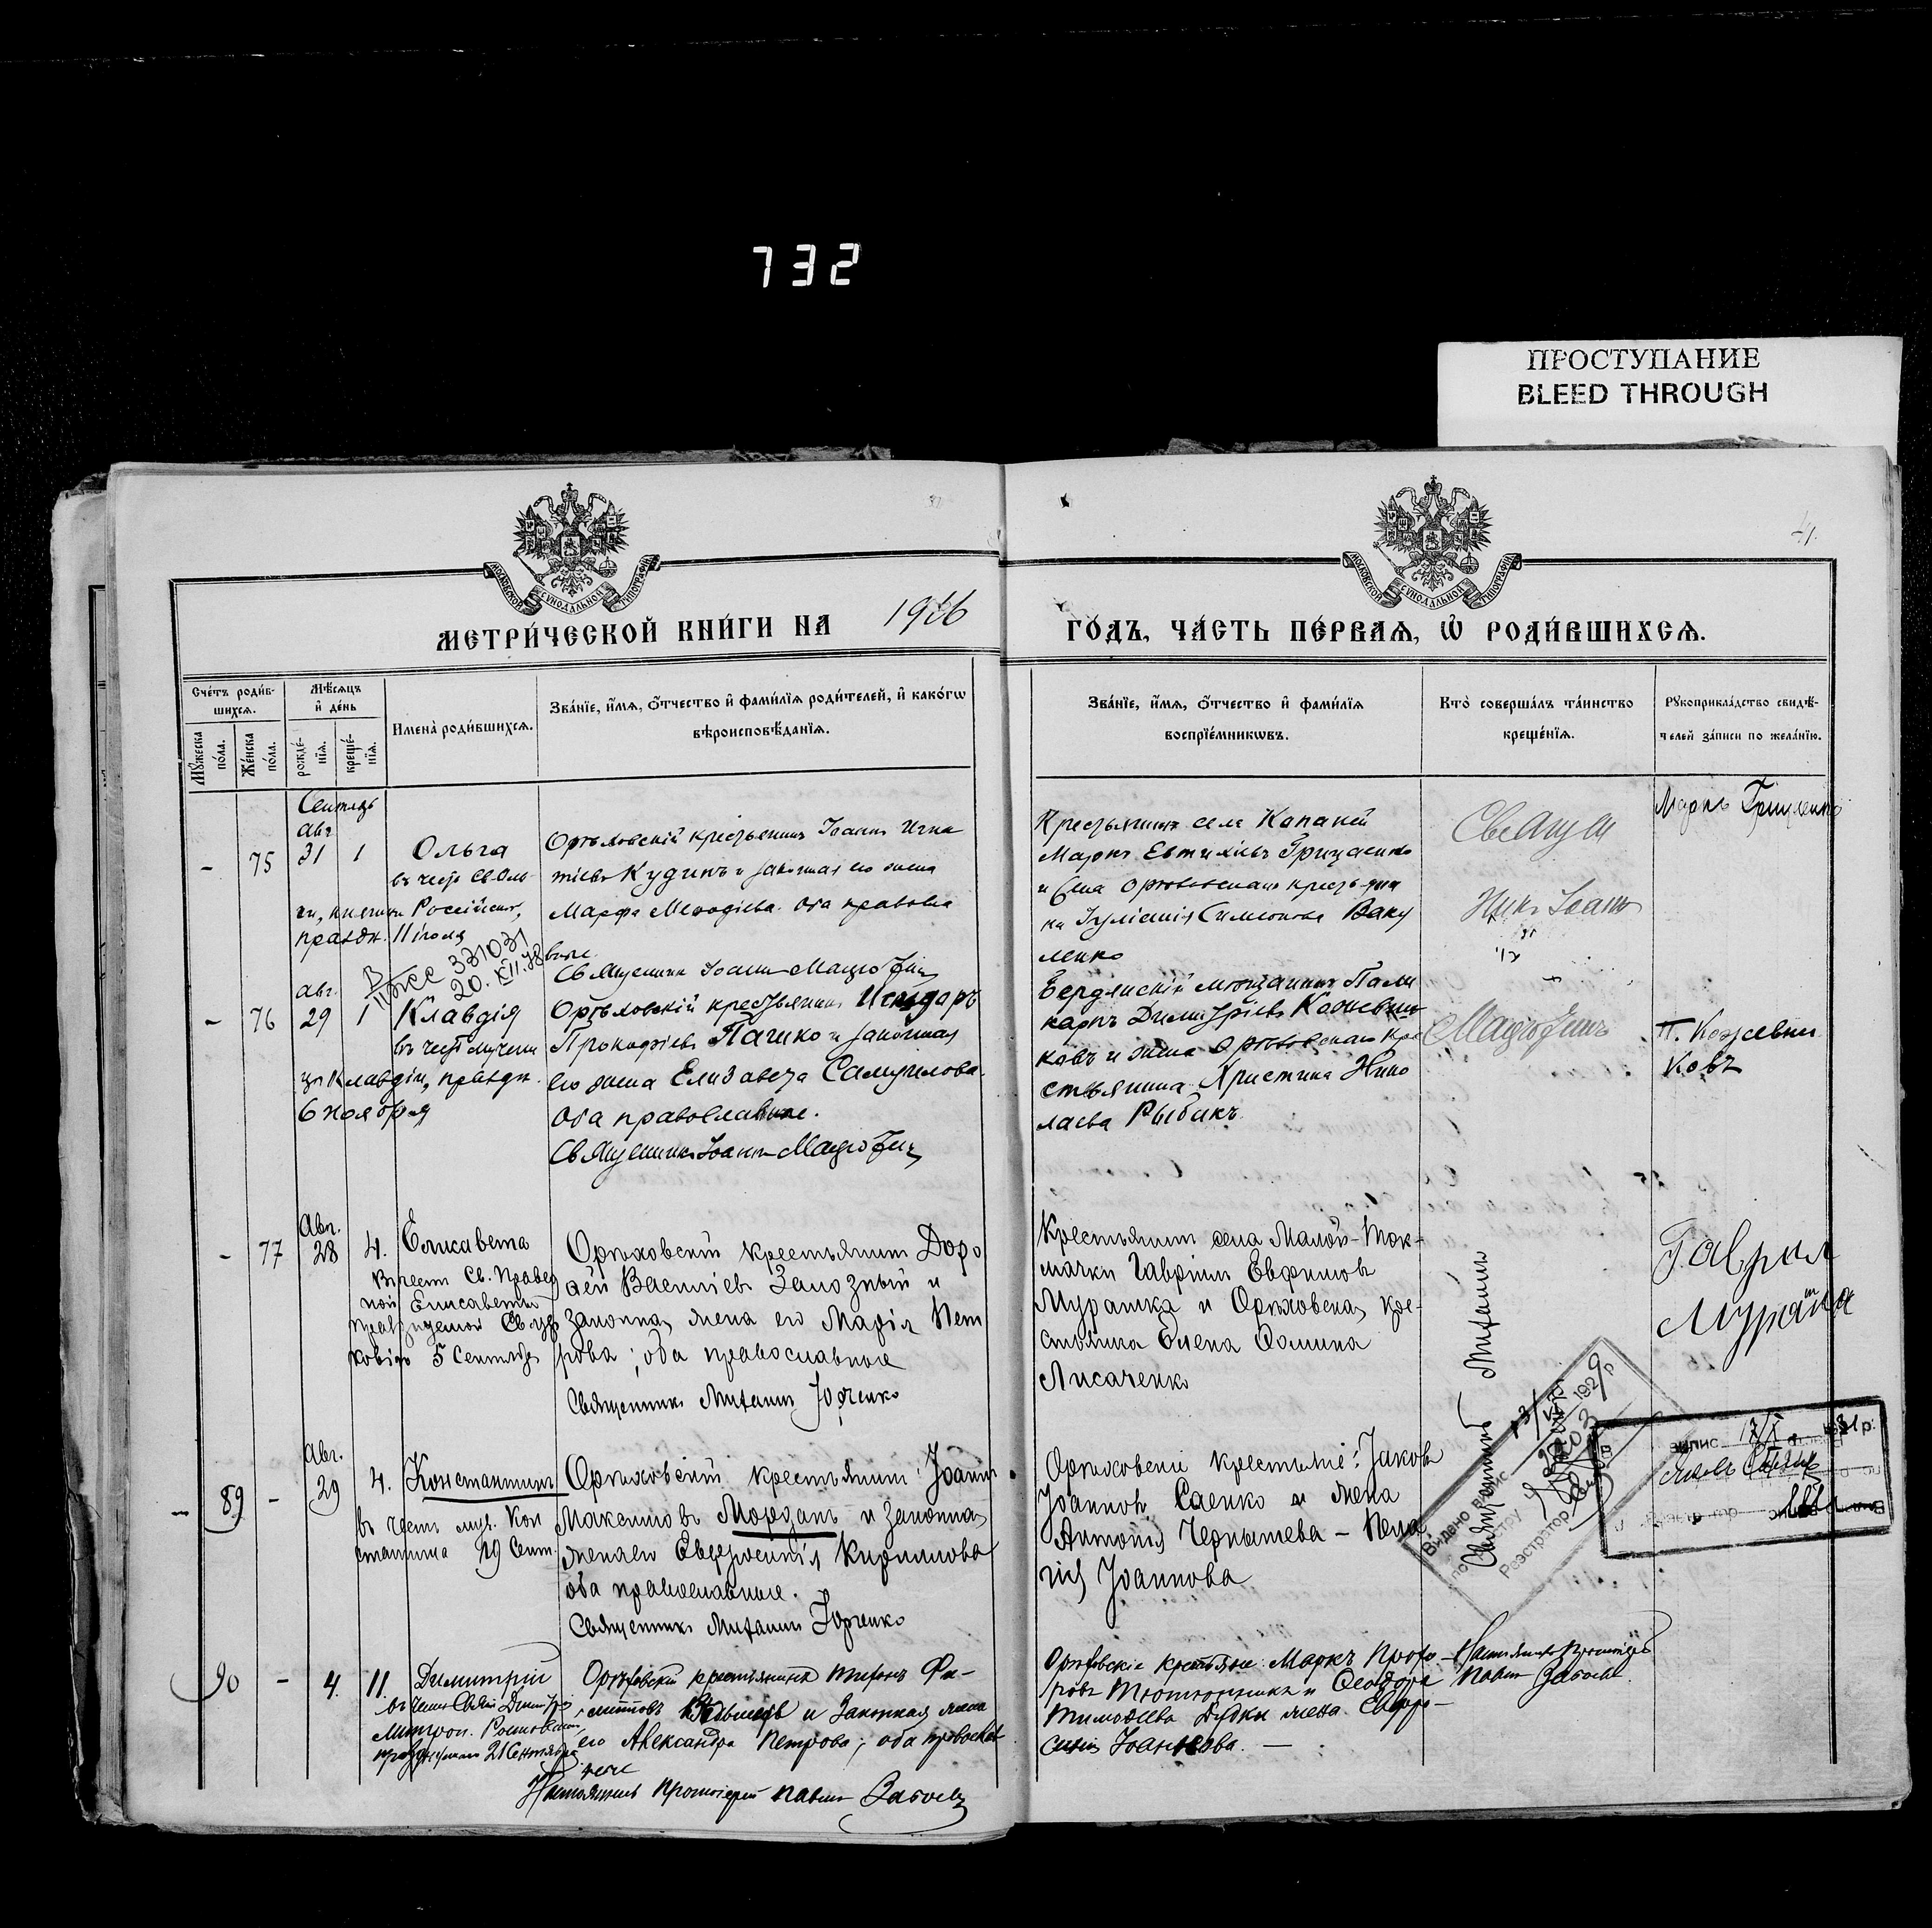 732
ПРОСТУПАНИЕ
BLEED THROUGH
МОСКОВСКОЙ СѴНОДАЛЬНОЙ ТИПОГРАФІИ
МОСКОВСКОЙ СѴНОДАЛЬНОЙ ТИПОГРАФІИ
МЕТРИ́ЧЕСКОЙ КНИ́ГИ НА 1916
ГО́ДЪ, ЧА́СТЬ ПЕ́РВАѦ, Ѡ҆ РОДИ́ВШИХСѦ.
Сче́тъ роди́в-
шихсѧ.
Мꙋ́жеска по́ла.
Же́нска по́ла.
Мѣ́сѧцъ и҆ де́нь
рожде́-
нїѧ.
креще́-
нїѧ.
Имена̀ роди́вшихсѧ.
Зва́нїе, и҆́мѧ, ѻ҆́тчество и҆ фами́лїѧ роди́телей, и҆ како́гѡ
вѣроисповѣ́данїѧ.
Зва́нїе, и҆́мѧ, ѻ҆́тчество и҆ фами́лїѧ
воспрїе́мникѡвъ.
Кто̀ соверша́лъ та́инство
креще́нїѧ.
Рꙋкоприкла́дство свидѣ́-
телей за́писи по жела́нїю.
Сентябр
Авг
- 75 31 1 Ольга
въ честь Св. Оль
ги, княгини Россійской,
праздн. 11 іюля
Орѣховскій крестьянинъ Іоаннъ Игна
тіевъ Кудинъ и законная его жена
Марфа Меѳодіева. Оба правосла
вные.
Священникъ Іоаннъ
Крестьянинъ села Копаней
Маркъ Евтихіевъ Грищенко
и села Орѣховская крестьян
ка Іуліанія Симеонова Ваку
ленко
Священ
Ник Іоанн
Маркъ Грищенко
331031
20. XII. 78
авг.
- 76 29 1 Клавдія
въ честь мучени
цы Клавдіи, праздн.
6 ноября
Орѣховскій крестьянинъ Исидоръ
Прокофіевъ Пачико и законная
его жена Елизавета Самуилова.
Оба православные.
Священникъ Іоаннъ
Бердянскій мѣщанинъ Поли
карпъ Димитріевъ Кожевни
ковъ и жена Орѣховскаго кре
стьянина Христина Нико
лаева Рыбакъ
П. Кожевни
ковъ
Авг.
- 77 28 4. Елисавета
въ честь Св. Правед
ной Елисаветы
празднуемой Св. Цер
ковію 5 Сентября
Орѣховскій крестьянинъ Доро
ѳей Василіевъ Залозный и
законная жена его Марія Пет
рова; оба православные
Священникъ Михаилъ Юрченко
Крестьянинъ села Малой-Ток-
мачки Гавріилъ Евфимовъ
Мурашка и Орѣховская кре-
стьянка Елена Ѳомина
Лисаченко
Гаврил
Мурашка
Священникъ Михаилъ
Авг.
- 89 - 29 4. Константинъ
въ честь муч. Кон
стантина 29 Сент.
Орѣховскій крестьянинъ Іоаннъ
Максимовъ Морданъ и законная
жена его Евдокія Кириллова
оба православные.
Священникъ Михаилъ Юрченко
Орѣховскіе крестьяне: Іаковъ
Іоанновъ Саенко и жена
Антонія Чернышева - Пела
гія Іоаннова
Видено випис
Реэстратор
192 р
90 - 4. 11. Димитрій
въ честь Святит. Димитрія
Митроп. Ростовскаго
празднуемаго 21 Сентября
Орѣховскій крестьянинъ Тихонъ Фи-
липповъ и законная жена
его Александра Петрова; оба православ
ные
Настоятель Протоіерей Павелъ
Орѣховскіе крестьяне: Маркъ Прохо
ровъ Тютюнникъ и Ѳеодора
Тимоѳеева жена Евфро-
синія Іоаннова. —
Настоятель Протоіерей
Павелъ